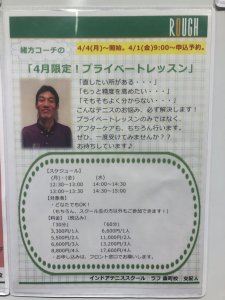 ROUGH
緒方コーチの
4/4(月)~開始。4/1(金)9:00~申込予約。
「4月限定！プライベートレッスン」
「直したい所がある・・・」
「もっと精度を高めたい・・・」
「そもそもよく分からない・・・」
こんなテニスのお悩み、必ず解決します！
プライベートレッスンのみではなく、
アフターケアも、もちろん行います。
ぜひ、一度受けてみませんか？？
お待ちしています♪
【スケジュール】
(月)・(金) (水)
12:30~13:00 14:00~14:30
13:00~13:30 14:30~15:00
【対象者】
・どなたでもOK！
（もちろん、スクール生の方以外もご参加できます！）
【料金】(税込み)
《30分》 《60分》
3,300円/1人 6,600円/1人
5,500円/2人 11,000円/2人
6,600円/3人 13,200円/3人
8,800円/4人 17,600円/4人
・お申し込みは、フロント窓口でお願いします。
インドアテニススクール ラフ 森町校 支配人